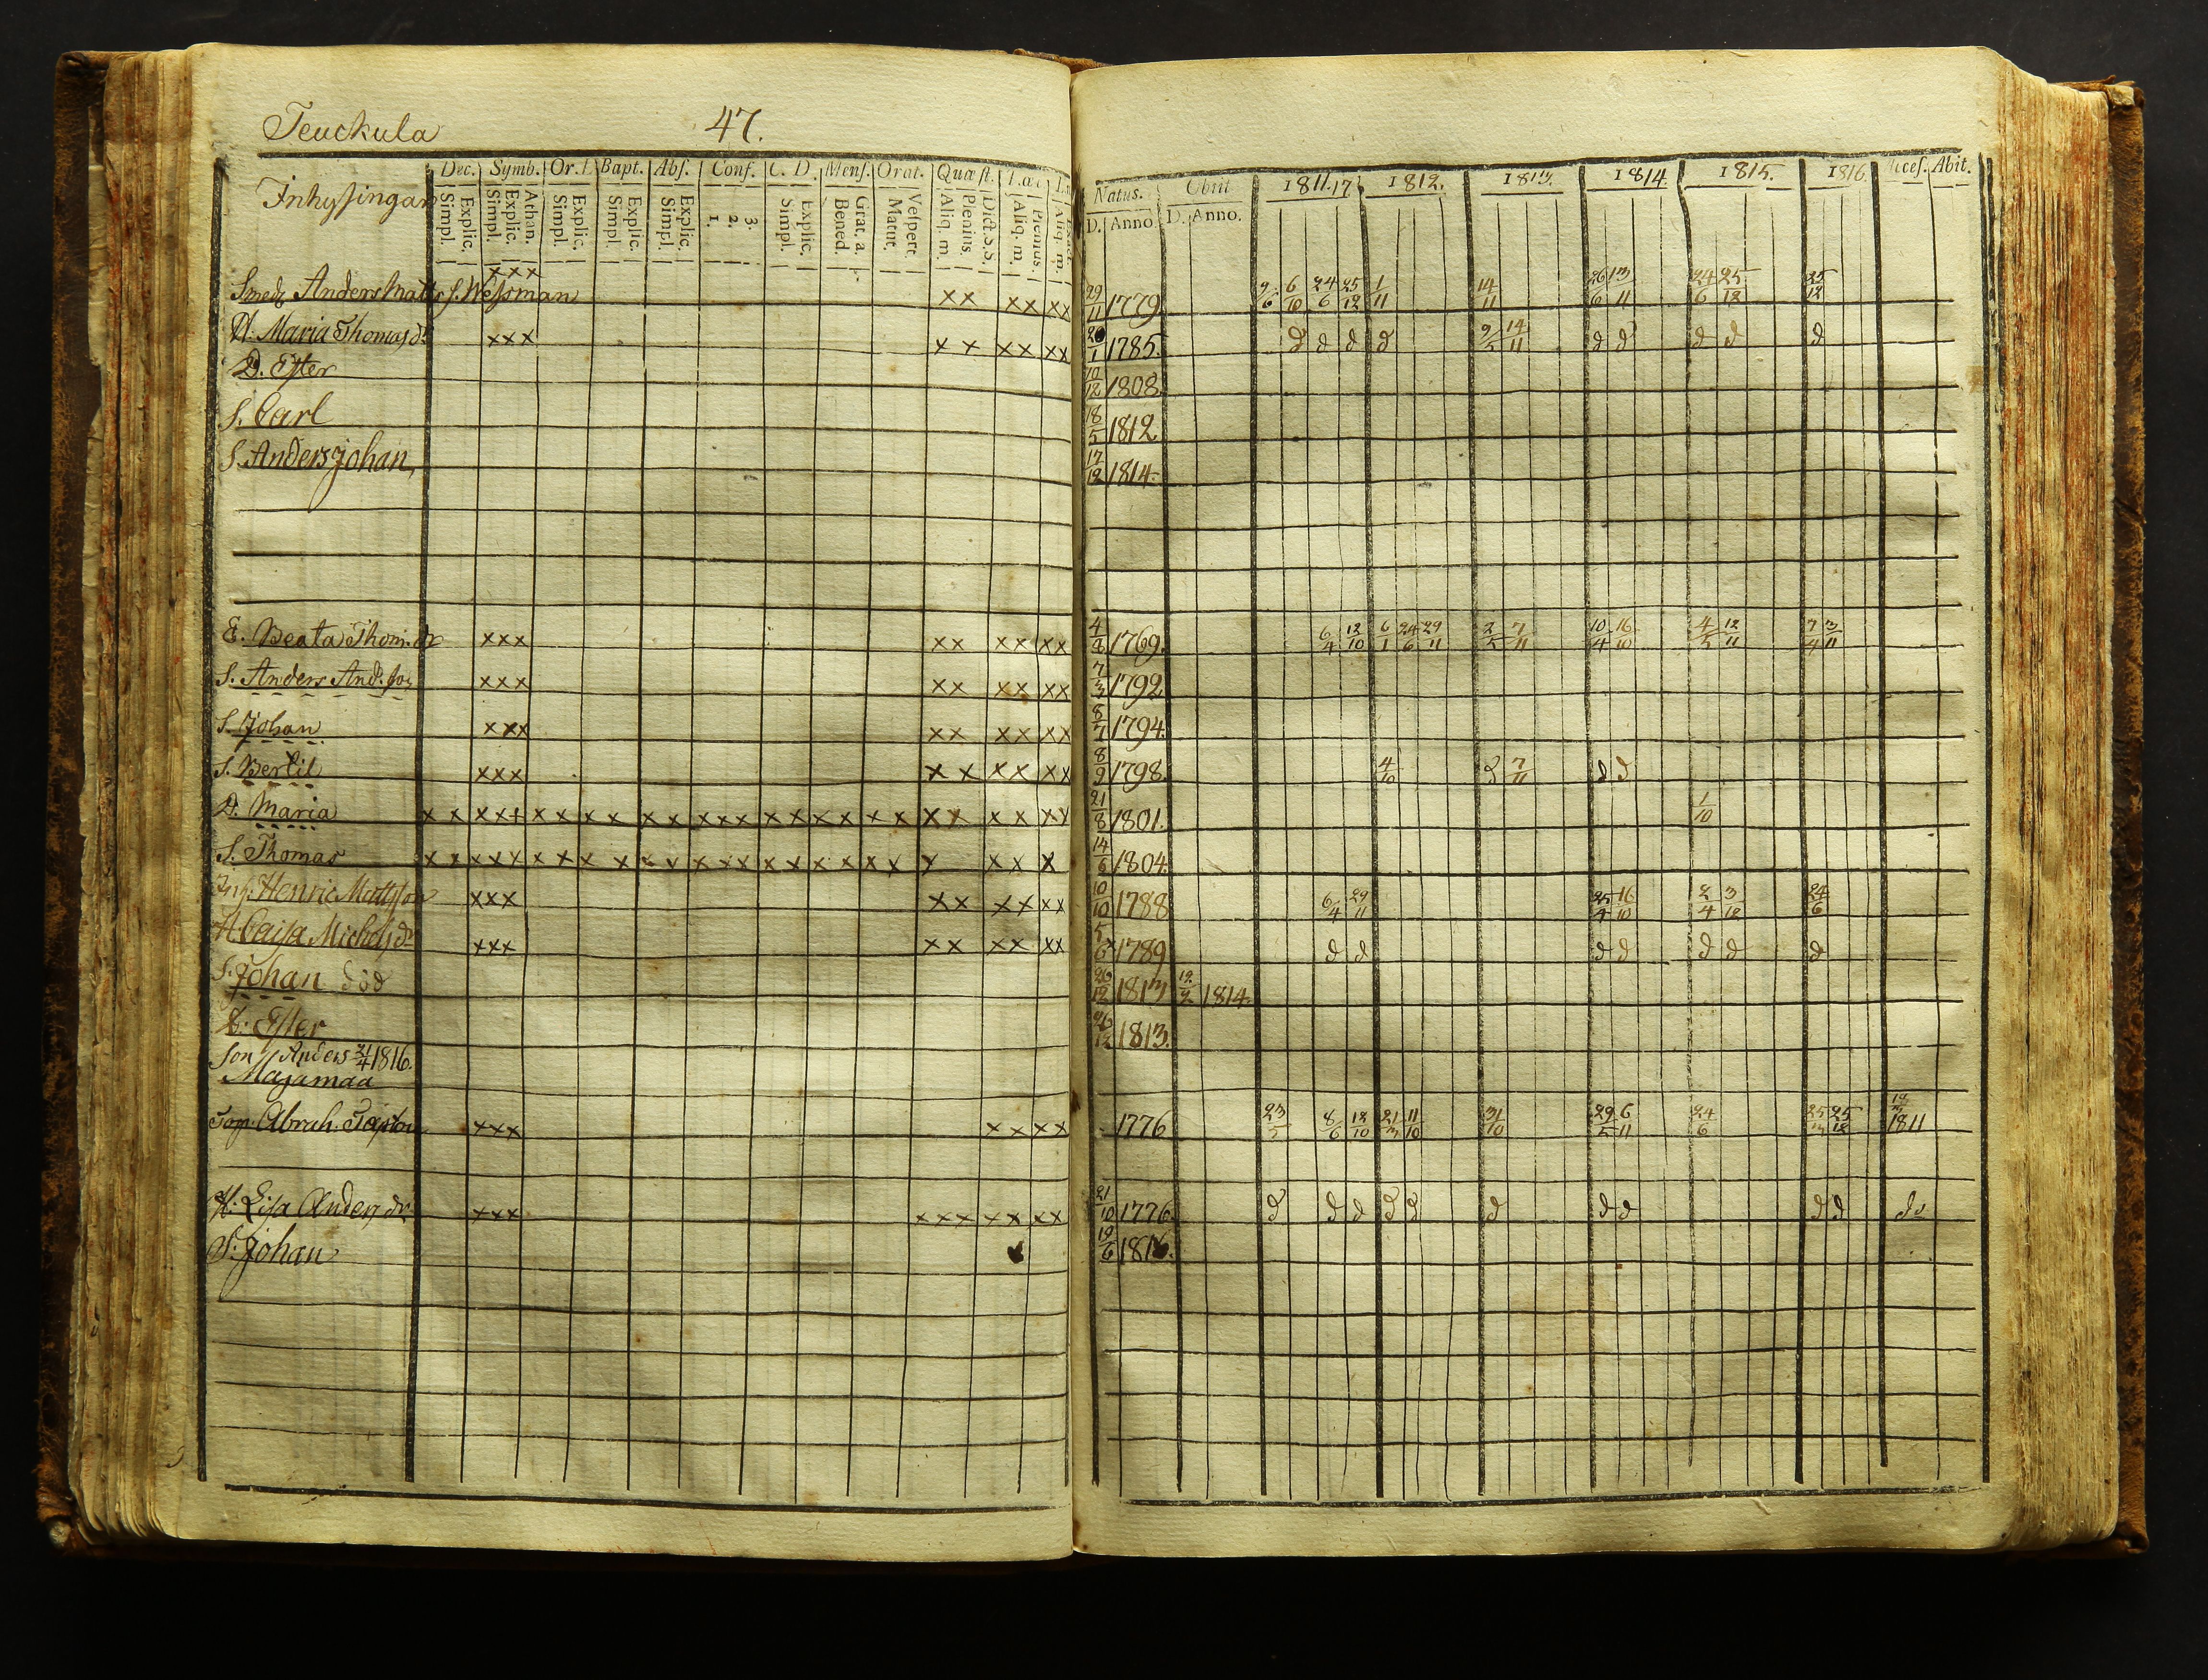 Teuckula 47.
Inhysingar
Dec. Symb. Or. D Bapt. Abs. Conf. C. D. Mens. Orat. Quæst.
Simpl. Explic. Simpl. Explic. Athan. Simpl. Explic. Simpl. Explic. Simpl. Explic. 1. 2. 3. Simpl. Explic. Bened. Grat. a. Matut. Vespert. Aliq. m. Plenius. Dict. S.S. Aliq. m. Plenius. Aliq. m.
Natus. Obiit 1811. 1812. 1813. 1814 1815. 1816. Acces. Abit.
D. Anno D. Anno.
xxx
Smed Anders Matts S. Wessman xx xx xx 29/11 1779 9/6 6/10 24/6 25/12 1/11 14/11 26/6 13/11 24/6 25/12 25/12
H. Maria Thomas dr xxx x x xx xx 1785. d d d d 9/5 14/11 d d d d d
D. Ester 10/12 1808.
S. Carl 18/5 1812
S. Anders Johan, 17/12 1814.
E. Beata Thom. dr xxx xx xx xx 4/8 1769. 6/4 12/10 6/1 24/6 29/11 2/5 7/11 10/4 16/10 4/5 12/11 7/4 3/11
S. Anders And. Son xxx xx xx xx 7/3 1792
S. Johan xxx xx xx xx 8/7 1794.
S. Bertil xxx x x xx xx 8/9 1798. 4/10 d 7/11 d d
D. Maria x x xxx x x x x x x xxx x x x x x x x x x x xx 21/8 1801. 1/10
S. Thomas x x xxx x x x x x x x x x x x x x x x x x x x x 14/6 1804.
Inh. Henric Mattsson xxx xx xx xx 10/10 1788 6/4 29/11 25/4 16/10 2/4 3/12 24/6
H. Caisa Michels dr xxx xx xx xx 5/6 1789 d d d d d d d
S. Johan död 26/12 1813 1814.
D. Ester 26/12 1813.
Son Anders 21/4 1816.
Majamaa
Torp. Abrah. xxx x x x x 1776 23/5 8/6 18/10 21/3 11/10 31/10 29/5 6/11 24/6 1811
H. Lisa Anders dr xxx xxx xx xx 21/10 1776. d d d d d d d d d d do
S. Johan 19/6 1816.